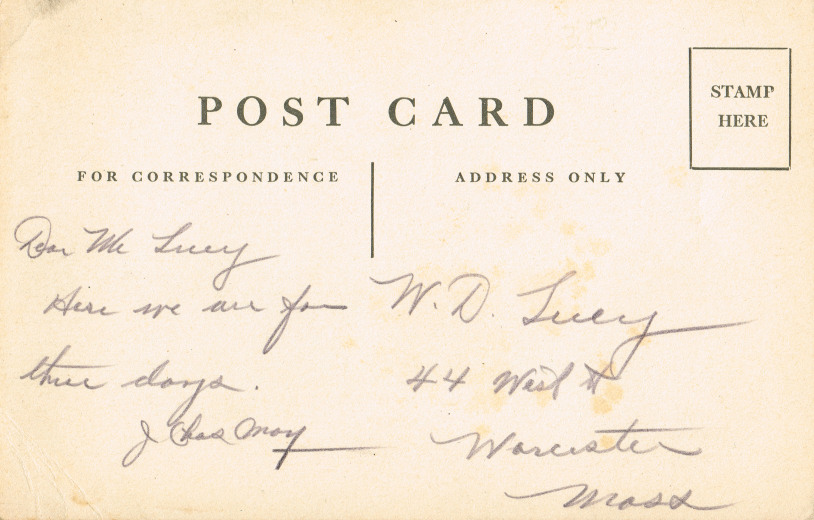 POST CARD
STAMP
HERE
FOR CORRESPONDENCE
ADDRESS ONLY
Dear Mr Lucy
Here we are for
three days.
J Chas May
W. D. Lucy
44 West St
Worcester
Mass